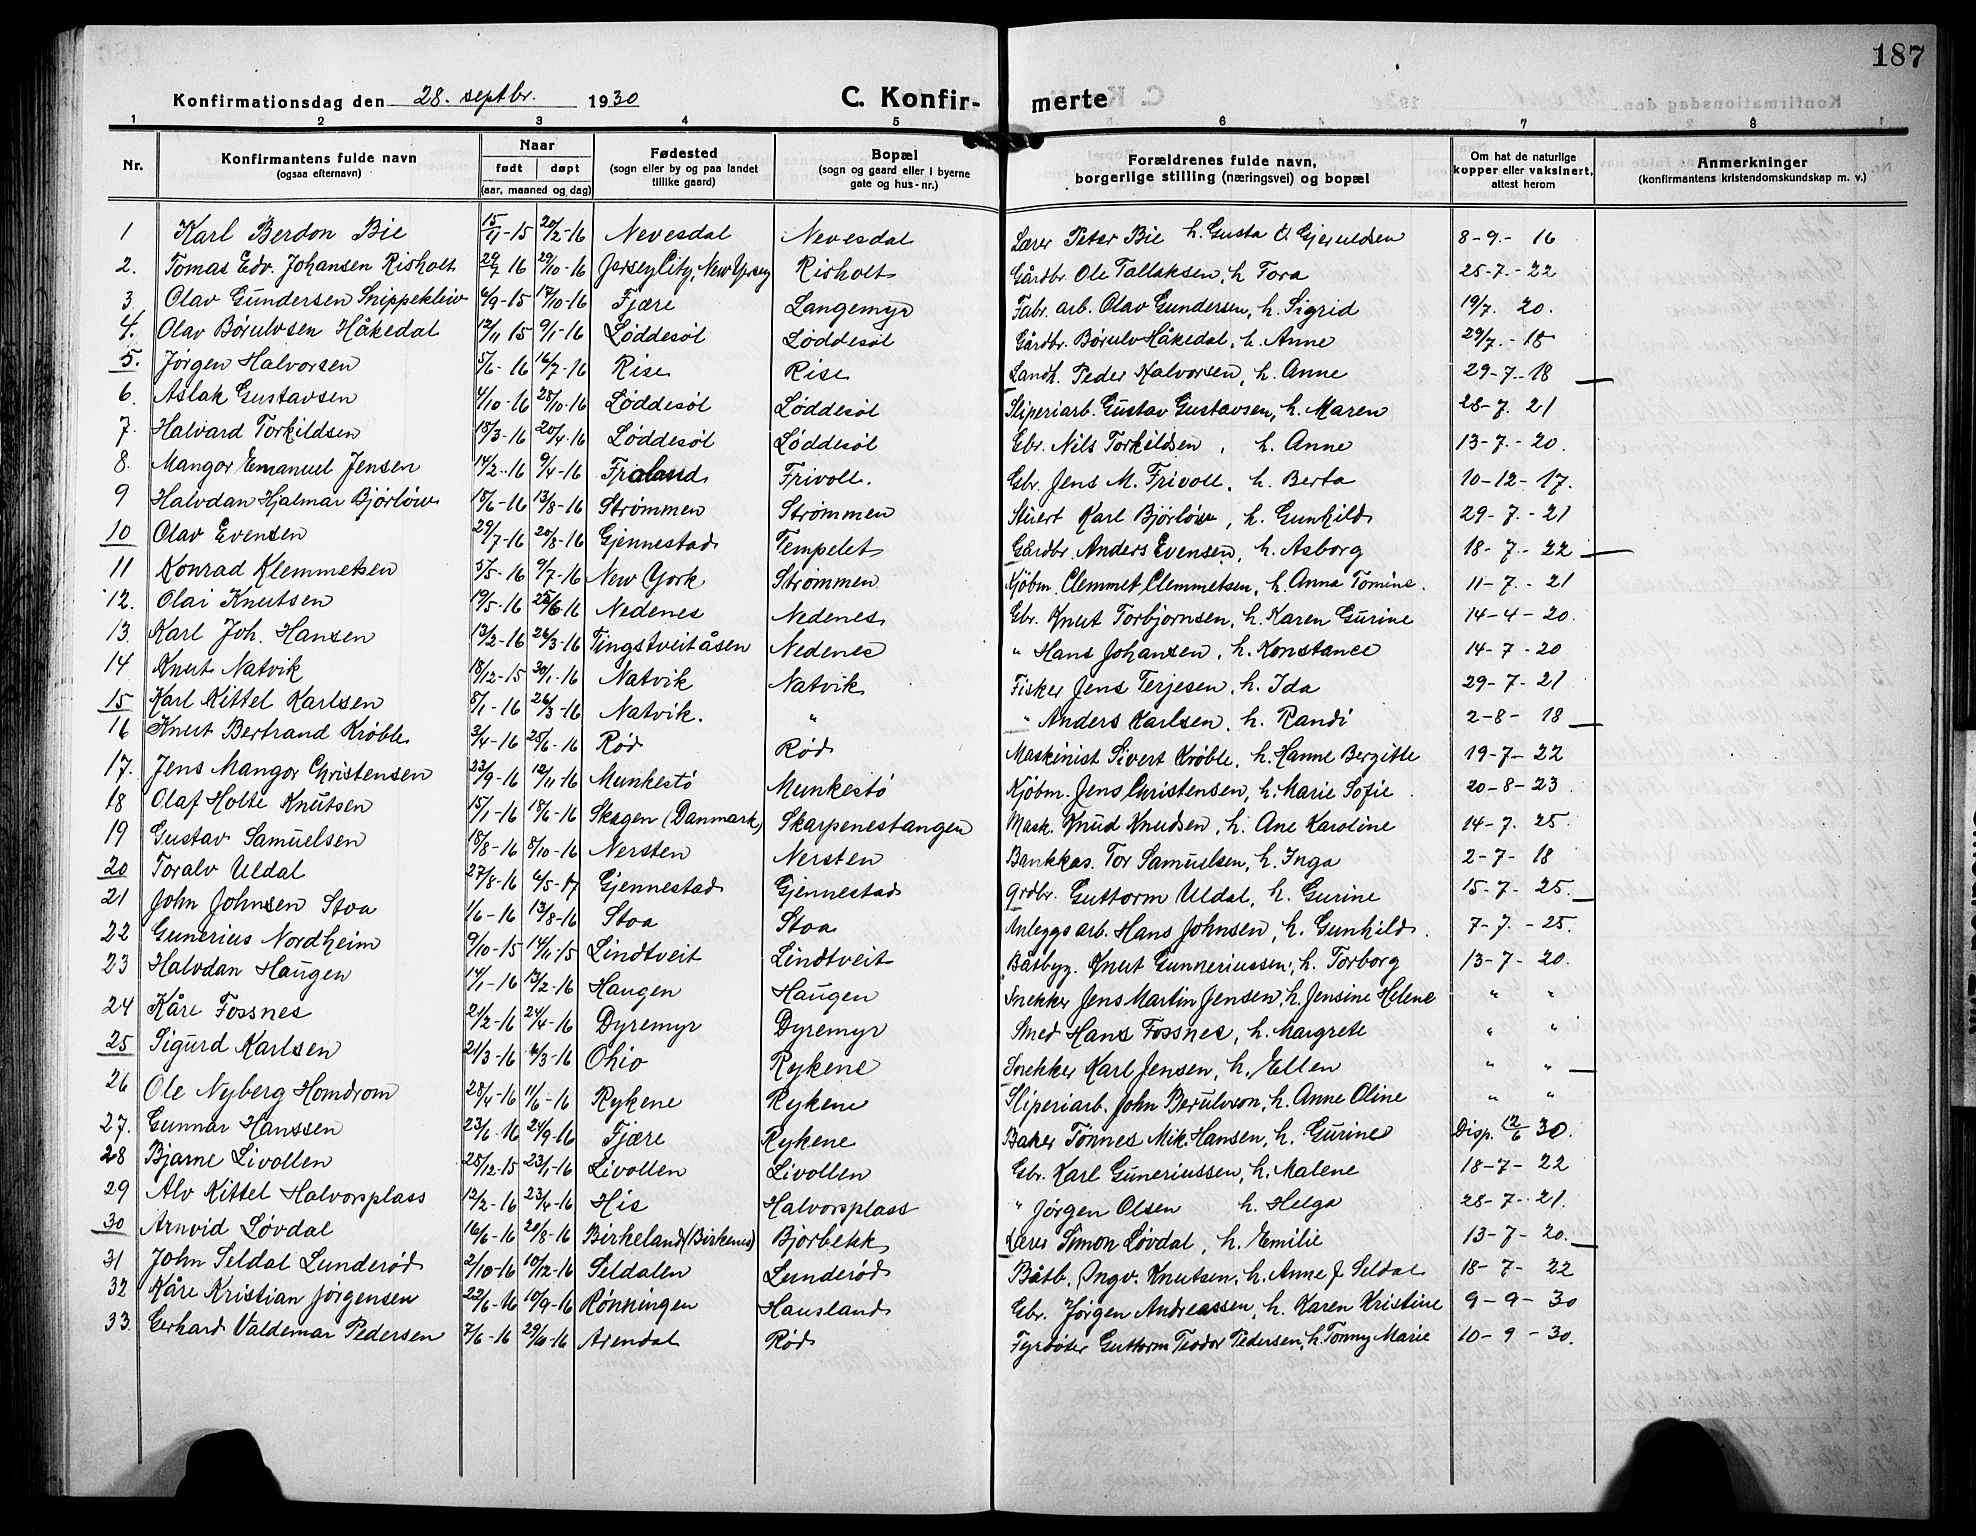 187
Konfirmationsdag den 28. septbr. 1930 C. Konfir- merte
1 2 3 4 5 6 7 8
Nr. Konfirmantens fulde navn (ogsaa efternavn) Naar født døpt (aar, maaned og dag) Fødested (sogn eller by og paa landet tillike gaard) Bopæl (sogn og gaard eller i byerne gate og hus-nr.) Forældrenes fulde navn, borgerlige stilling (næringsvei) og bopæl Om hat de naturlige kopper eller vaksinert, attest herom Anmerkninger (konfirmantens kristendomskundskap m. v.)
1 Karl Berdon Bie 15/11-15 20/2-16 Nevesdal Nevesdal Lærer Peter Bie h. Gusta O. Gjeruldsen 8-9.-16
2. Tomas Edv. Johansen Risholt 29/7 16 29/10-16 Jersey City, New Yersey Risholt Gårdbr. Ole Tallaksen, h Tora 25-7.-22
3 Olav Gundersen Snippekleiv 6/9-15 17/10-16 Fjære Langemyr Fabr. arb. Olav Gundersen, h. Sigrid 19/7. 20.
4. Olav Børulvsen Håkedal 12/11 15 9/1-16 Løddesøl Løddesøl Gårdbr. Børulv Håkedal, h. Anne 29/7.-18
5. Jørgen Halvorsen 5/6-16 16/7-16 Rise Rise Landh. Peder Halvorsen, h. Anne 29-7-18
6 Aslak Gustavsen 4/10-16 28/10-16 Løddesøl Løddesøl Sliperiarb. Gustav Gustavsen, h. Maren 28-7. 21
7. Halvard Torkildsen 18/3-16 20/4-16 Løddesøl Løddesøl Gbr. Nils Torkildsen, h. Anne 13-7.-20.
8. Mangor Emanuel Jensen 14/2-16 9/4-16 Froland Frivoll. Gbr. Jens M. Frivoll, h. Berta 10-12-17.
9 Halvdan Hjalmar Bjørløw 18/6-16 13/8-16 Strømmen Strømmen Stuert Karl Bjørløw, h. Gunhild 29-7.-21
10 Olav Evensen 29/7-16 20/8-16 Gjennestad Tempelet Gårdbr. Anders Evensen, h. Asborg 18-7.-22
11 Konrad Klemmetsen 5/5-16 9/7-16 New York Strømmen Kjøbm. Clemmet Clemmetsen, h. Anna Tomine. 11-7.-21
12. Olai Knutsen 19/5-16 25/6-16 Nedenes Nedenes Gbr. Knut Torbjørnsen, h. Karen Gurine 14-4-20.
13. Karl Joh. Hansen 13/2-16 26/3-16 Tingstveitåsen Nedenes " Hans Johansen, h. Konstance 14-7-20
14 Knut Natvik 18/12-15 30/1-16 Natvik Natvik Fisker Jens Terjesen, h. Ida 29-7-21
15 Karl Kittel Karlsen 8/1-16 26/3-16 Natvik. " " Anders Karlsen. h. Randi 2-8-18
16 Knut Bertrand Krøble 3/4-16 25/6-16 Rød Rød Maskinist Sivert Krøble, h. Hanne Bergitte 19-7-22
17. Jens Mangor Christensen 23/9-16 12/11-16 Munkestø Munkestø Kjøbm. Jens Christensen, h. Marie Sofie. 20-8-23
18 Olaf Holte Knutsen 15/1-16 18/6-16 Skagen (Danmark) Skarpenestangen Mask. Knud Knudsen, h. Ane Karoline 14-7. 25.
19 Gustav Samuelsen 18/8-16 8/10-16 Nersten Nersten Bankkas. Tor Samuelsen, h. Inga 2-7-18
20 Toralv Uldal 27/8-16 6/5-17 Gjennestad Gjennestad grdbr. Guttorm Uldal, h. Gurine 15-7-25.
21 John Johnsen Stoa 1/6-16 13/8-16 Stoa Stoa Anleggsarb. Hans Johnsen, h. Gunhild. 7-7.-25.
22 Gunerius Nordheim 9/10-15 14/11-15 Lindtveit Lindtveit Båtbyg. Knut Gunneriussen, h. Torborg 13-7-20.
23 Halvdan Haugen 14/1-16 13/2-16 Haugen Haugen Snekker Jens Martin Jensen, h. Jensine Helene " "
24 Kåre Fossnes 21/2-16 24/4-16 Dyremyr Dyremyr Smed Hans Fossnes, h. Margrete " "
25 Sigurd Karlsen 21/3-16 /3-16 Ohio Rykene Snekker Karl Jensen, h. Ellen " "
26 Ole Nyberg Homdrom 28/4-16 11/6-16 Rykene Rykene Sliperiarb. John Berulvson, h. Anne Oline " "
27. Gunnar Hanssen 23/6-16 24/9-16 Fjære Rykene Baker Tønnes Mik. Hansen, h. Gurine Disp. 12/6 30.
28 Bjarne Livollen 28/12-15 23/1-16 Livollen Livollen Gbr. Karl Guneriussen, h. Malene 18-7-22
29 Alv Kittel Halvorsplass 12/2-16 23/4-16 His Halvorsplass " Jørgen Olsen h. Helga 28-7-21.
30 Arnvid Løvdal 16/6-16 20/8-16 Birkeland (Birkenes) Bjorbekk Lærer Simon Løvdal, h. Emilie 13-7-20.
31 John Seldal Lunderød 2/10-16 10/12-16 Seldalen Lunderød Båtb. Ingv. Knutsen, h. Anne J. Seldal 18-7-22
32 Kåre Kristian Jørgensen 22/6-16 10/9-16 Rønningen Hausland Gbr. Jørgen Andreassen, h. Karen Kristine 9-9-30
33. Gerhard Valdemar Pedersen 7/6-16 29/10-16 Arendal Rød Fyrbøter Guttorm Teodor Pedersen, h. Tonny Marie 10-9-30.